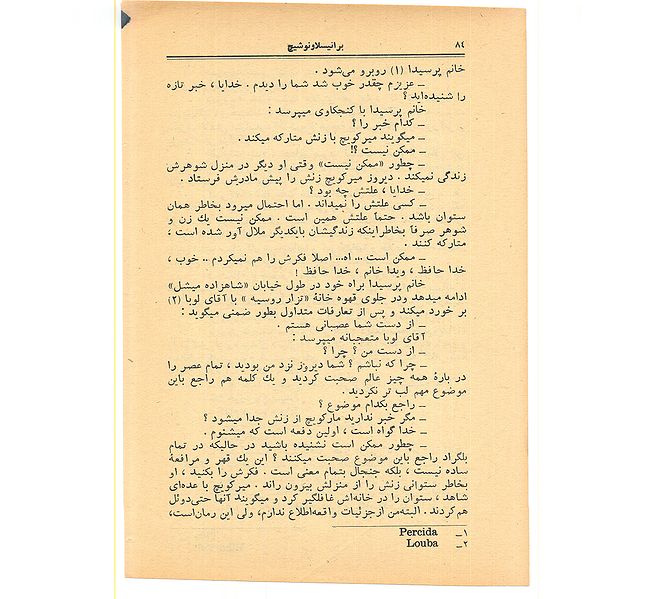 ۸٤
برانیسلاونوشیچ
خانم پرسیدا (۱) روبرو می‌شود .
ـ عزیزم چقدر خوب شد شما را دیدم . خدایا ، خبر تازه
را شنیده‌اید ؟
خانم پرسیدا با کنجکاوی میپرسد :
ـ کدام خبر را ؟
ـ میگویند میرکویچ با زنش متارکه میکند .
ـ ممکن نیست ؟!
ـ چطور «ممکن نیست» وقتی او دیگر در منزل شوهرش
زندگی نمیکند . دیروز میرکویچ زنش را پیش مادرش فرستاد .
ـ خدایا ، علتش چه بود ؟
ـ کسی علتش را نمیداند . اما احتمال میرود بخاطر همان
ستوان باشد . حتماً علتش همین است . ممکن نیست یك زن و
شوهر صرفاً بخاطراینکه زندگیشان بایکدیگر ملال آور شده است ،
متارکه کنند .
ـ ممکن است ... اه... اصلا فکرش را هم نمیکردم .. خوب ،
خدا حافظ ، ویدا خانم ، خدا حافظ !
خانم پرسیدا براه خود در طول خیابان «شاهزاده میشل»
ادامه میدهد ودر جلوی قهوه خانهٔ «تزار روسیه » با آقای لوبا (۲)
بر خورد میکند و پس از تعارفات متداول بطور ضمنی میگوید :
ـ از دست شما عصبانی هستم .
آقای لوبا متعجبانه میپرسد :
ـ از دست من ؟ چرا ؟
ـ چرا که نباشم ؟ شما دیروز نزد من بودید ، تمام عصر را
در بارهٔ همه چیز عالم صحبت کردید و یك کلمه هم راجع باین
موضوع مهم لب تر نکردید .
ـ راجع بکدام موضوع ؟
ـ مگر خبر ندارید مارکویچ از زنش جدا میشود ؟
ـ خدا گواه است ، اولین دفعه است که میشنوم .
ـ چطور ممکن است نشنیده باشید در حالیکه در تمام
بلگراد راجع باین موضوع صحبت میکنند ؟ این یك قهر و مرافعهٔ
ساده نیست ، بلکه جنجال بتمام معنی است . فکرش را بکنید ، او
بخاطر ستوانی زنش را از منزلش بیرون راند . میرکویچ با عده‌ای
شاهد ، ستوان را در خانه‌اش غافلگیر کرد و میگویند آنها حتی‌دوئل
هم‌کردند . البته‌من ازجزئیات واقعه‌اطلاع ندارم، ولی این رمان‌است،
۱ـ Percida
۲ـ Louba